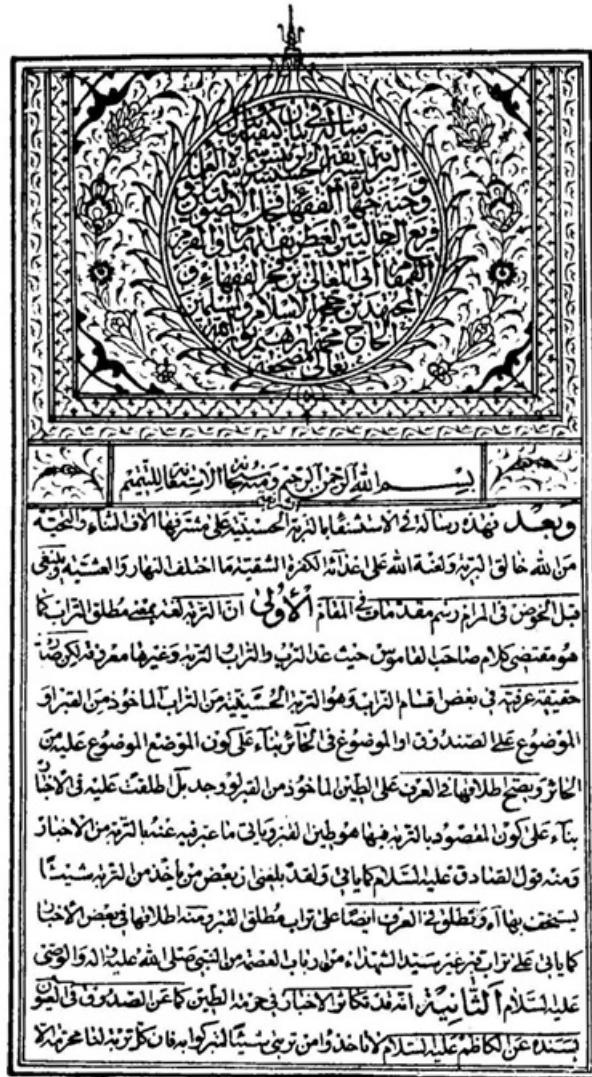 رسالة في بيان كيفية
وجنة جهابذة الفقهاء فحل
القمقام ابي المعالي نجل فخر الفقهاء و
المجتهدين حجة الاسلام والمسلمين
الحاج محمد ابرهيم
تعالى
بسم الله الرحمن الرحيم ومنه سبحانه الاستعانة للتتميم
وبعد فهذه رسالة في الاستشفاء بالتربة الحسينية على مشرفها آلاف الثناء والتحية
من الله خالق البرية ولعنة الله على اعدائه الكفرة الشقية ما اختلف النهار والعشية وينبغي
قبل الخوض في المرام رسم مقدمات في المقام الأولى ان التربة لغة بمعنى مطلق التراب كما
هو مقتضى كلام صاحب القاموس حيث عد الترب والتراب التربة وغيرها معرفة لكن
حقيقة عرفية في بعض اقسام التراب وهو التربة الحسينية من التراب المأخوذ من القبر او
الموضوع على الصندوق او الموضوع في الحائر بناء على كون الموضع الموضوع عليه من
الحائر ويصح اطلاقها في العرف على الطين المأخوذ من القبر لو وجد بل اطلقت عليه في الاخبار
بناء على كون المقصود بالتربة فيها هو طين القبر وياتي ما عبر فيه عنه بالتربة من الاخبار
ومنه قول الصادق عليه السلام كما ياتي ولقد بلغني ان بعض من يأخذ من التربة شيئا
يستخف بها آه وتطلق في العرف ايضا على تراب مطلق القبر ومنه اطلاقها في بعض الاخبار
كما ياتي على تراب قبر غير سيد الشهداء من ارباب العصمة من النبي صلى الله عليه واله والوصي
عليه السلام الثانية انه قد تكاثر الاخبار في حرمة الطين كما عن الصدوق في العيون
بسنده عن الكاظم عليه السلام لا تاخذوا من تربتي شيئا لتبركوا به فان كل تربة لنا محرمة الا